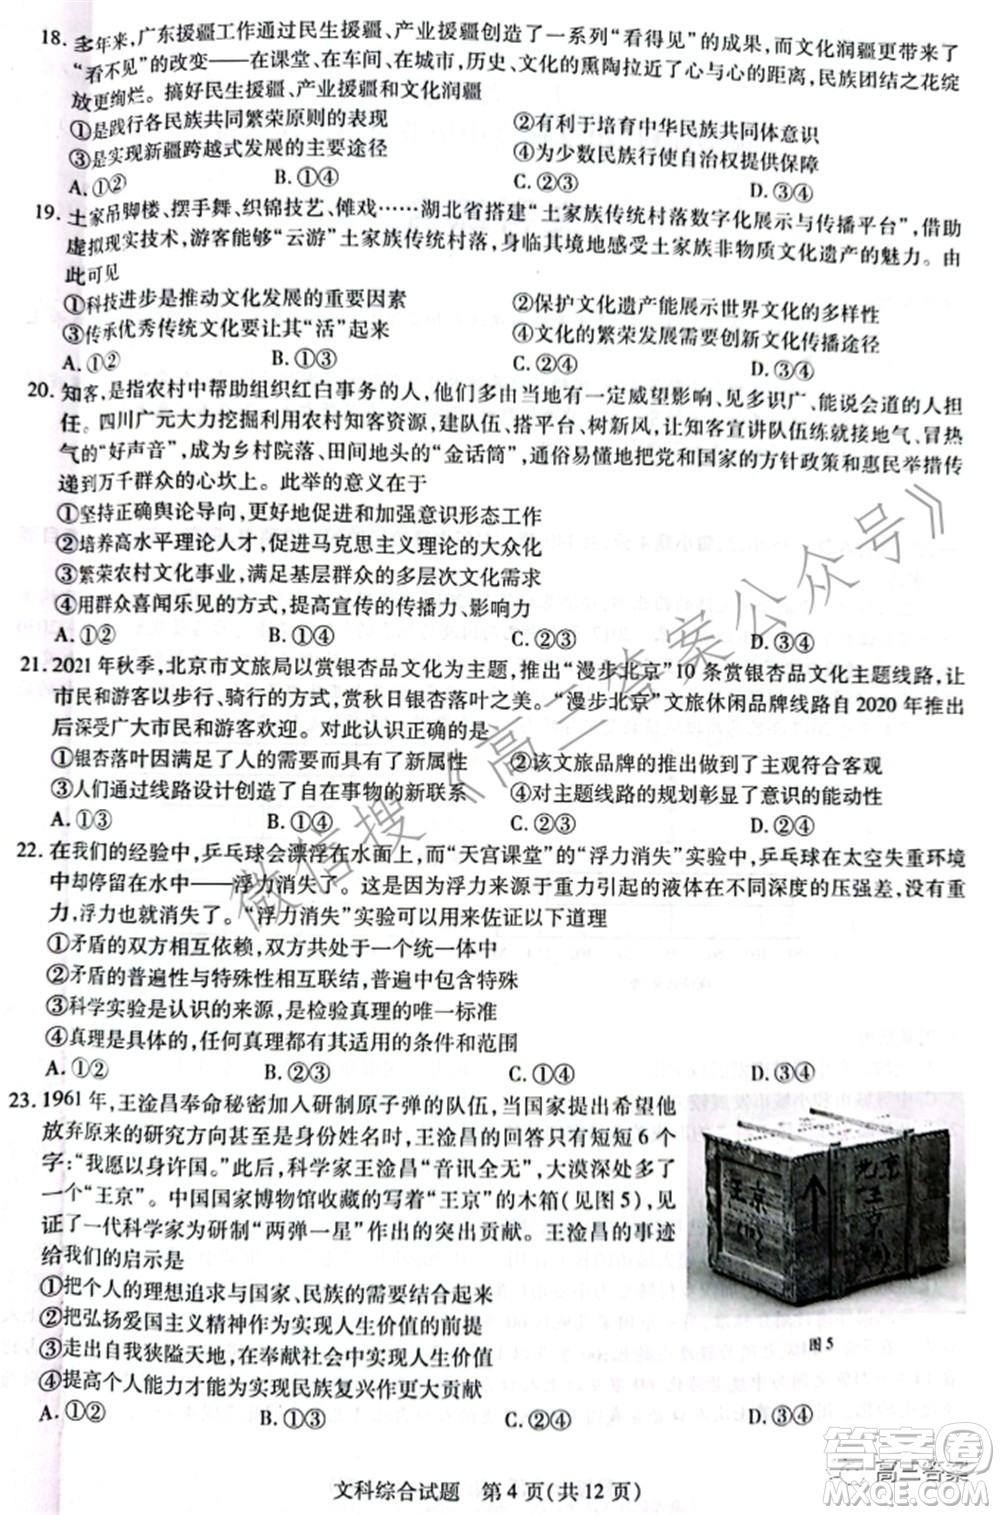 18. 多年来,广东援疆工作通过民生援疆、产业援疆创造了一系列“看得见”的成果,而文化润疆更带来了
“看不见”的改变——在课堂、在车间、在城市,历史、文化的熏陶拉近了心与心的距离,民族团结之花绽
放更绚烂。搞好民生援疆、产业援疆和文化润疆
①是践行各民族共同繁荣原则的表现 ②有利于培育中华民族共同体意识
③是实现新疆跨越式发展的主要途径 ④为少数民族行使自治权提供保障
A.①② B.①④ C.②③ D.③④
19. 土家吊脚楼、摆手舞、织锦技艺、傩戏……湖北省搭建“土家族传统村落数字化展示与传播平台”,借助
虚拟现实技术,游客能够“云游”土家族传统村落,身临其境地感受土家族非物质文化遗产的魅力。由
此可见
①科技进步是推动文化发展的重要因素 ②保护文化遗产能展示世界文化的多样性
③传承优秀传统文化要让其“活”起来 ④文化的繁荣发展需要创新文化传播途径
A.①② B.①③ C.②④ D.③④
20. 知客,是指农村中帮助组织红白事务的人,他们多由当地有一定威望影响、见多识广、能说会道的人担
任。四川广元大力挖掘利用农村知客资源,建队伍、搭平台、树新风,让知客宣讲队伍练就接地气、冒热
气的“好声音”,成为乡村院落、田间地头的“金话筒”,通俗易懂地把党和国家的方针政策和惠民举措传
递到万千群众的心坎上。此举的意义在于
①坚持正确舆论导向,更好地促进和加强意识形态工作
②培养高水平理论人才,促进马克思主义理论的大众化
③繁荣农村文化事业,满足基层群众的多层次文化需求
④用群众喜闻乐见的方式,提高宣传的传播力、影响力
A.①② B.①④ C.②③ D.③④
21. 2021年秋季,北京市文旅局以赏银杏品文化为主题,推出“漫步北京”10条赏银杏品文化主题线路,让
市民和游客以步行、骑行的方式,赏秋日银杏落叶之美。“漫步北京”文旅休闲品牌线路自2020年推出
后深受广大市民和游客欢迎。对此认识正确的是
①银杏落叶因满足了人的需要而具有了新属性 ②该文旅品牌的推出做到了主观符合客观
③人们通过线路设计创造了自在事物的新联系 ④对主题线路的规划彰显了意识的能动性
A.①③ B.①④ C.②③ D.②④
22. 在我们的经验中,乒乓球会漂浮在水面上,而“天宫课堂”的“浮力消失”实验中,乒乓球在太空失重环境
中却停留在水中——浮力消失了。这是因为浮力来源于重力引起的液体在不同深度的压强差,没有重
力,浮力也就消失了。“浮力消失”实验可以用来佐证以下道理
①矛盾的双方相互依赖,双方共处于一个统一体中
②矛盾的普遍性与特殊性相互联结,普遍中包含特殊
③科学实验是认识的来源,是检验真理的唯一标准
④真理是具体的,任何真理都有适用的条件和范围
A.①② B.②③ C.①④ D.③④
23. 1961年,王淦昌奉命秘密加入研制原子弹的队伍,当国家提出希望他
放弃原来的研究方向甚至是身份姓名时,王淦昌的回答只有短短6个
字:“我愿以身许国。”此后,科学家王淦昌“音讯全无”,大漠深处多了
一个“王京”。中国国家博物馆收藏的写着“王京”的木箱(见图5),见
证了一代科学家为研制“两弹一星”作出的突出贡献。王淦昌的事迹
给我们的启示是
①把个人的理想追求与国家、民族的需要紧密联系
②把弘扬爱国主义精神作为实现人生价值的前提
③走出自我狭隘天地,在奉献社会中实现人生价值
④提高个人能力才能为实现民族复兴作更大贡献
A.①② B.①③ C.②④ D.③④
王京
北京
王京
图5
文科综合试题 第4页(共12页)
微信搜《高三答案公众号》
答案卷
高三答案